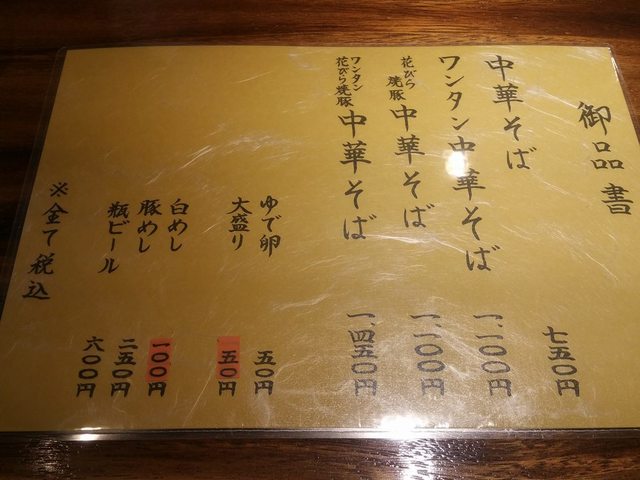 御品書
中華そば
七五〇円
ワンタン中華そば
一、一〇〇円
花びら焼豚 中華そば
一、一〇〇円
ワンタン
花びら焼豚 中華そば
一、四五〇円
ゆで卵
五〇円
大盛り
五〇円
白めし
一〇〇円
豚めし
二五〇円
瓶ビール
六〇〇円
※全て税込